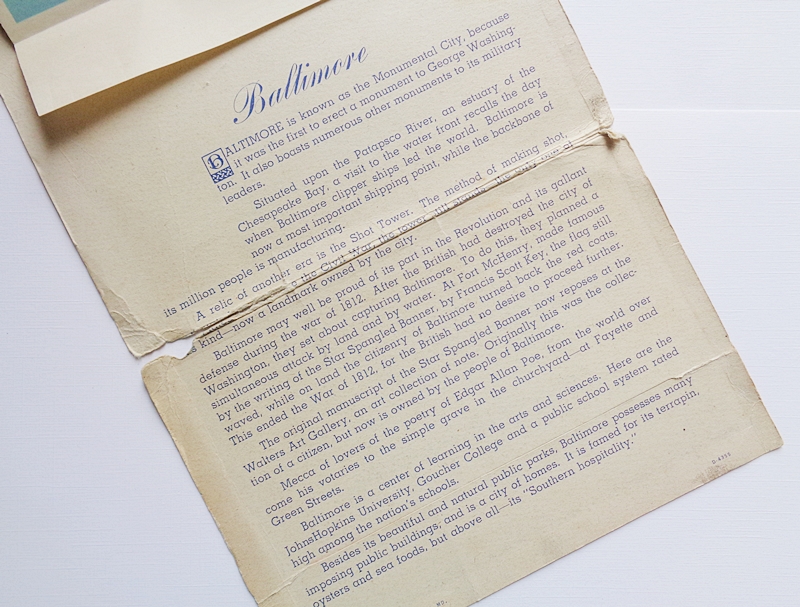 Baltimore
BALTIMORE is known as the Monumental City, because
it was the first to erect a monument to George Washing-
ton. It also boasts numerous other monuments to its military
leaders.
Situated upon the Patapsco River, an estuary of the
Chesapeake Bay, a visit to the water front recalls the day
when Baltimore clipper ships led the world. Baltimore is
now a most important shipping point, while the backbone of
its million people is manufacturing.
A relic of another era is the Shot Tower. The method of making shot,
the Civil War, the tower
kind—now a landmark owned by the city.
Baltimore may well be proud of its part in the Revolution and its gallant
defense during the war of 1812. After the British had destroyed the city of
Washington, they set about capturing Baltimore. To do this, they planned a
simultaneous attack by land and by water. At Fort McHenry, made famous
by the writing of the Star Spangled Banner, by Francis Scott Key, the flag still
waved, while on land the citizenry of Baltimore turned back the red coats.
This ended the War of 1812, for the British had no desire to proceed further.
The original manuscript of the Star Spangled Banner now reposes at the
Walters Art Gallery, an art collection of note. Originally this was the collec-
tion of a citizen, but now is owned by the people of Baltimore.
Mecca of lovers of the poetry of Edgar Allan Poe, from the world over
come his votaries to the simple grave in the churchyard—at Fayette and
Green Streets.
Baltimore is a center of learning in the arts and sciences. Here are the
JohnsHopkins University, Goucher College and a public school system rated
high among the nation's schools.
Besides its beautiful and natural public parks, Baltimore possesses many
imposing public buildings, and is a city of homes. It is famed for its terrapin,
oysters and sea foods, but above all—its "Southern hospitality."
MD.